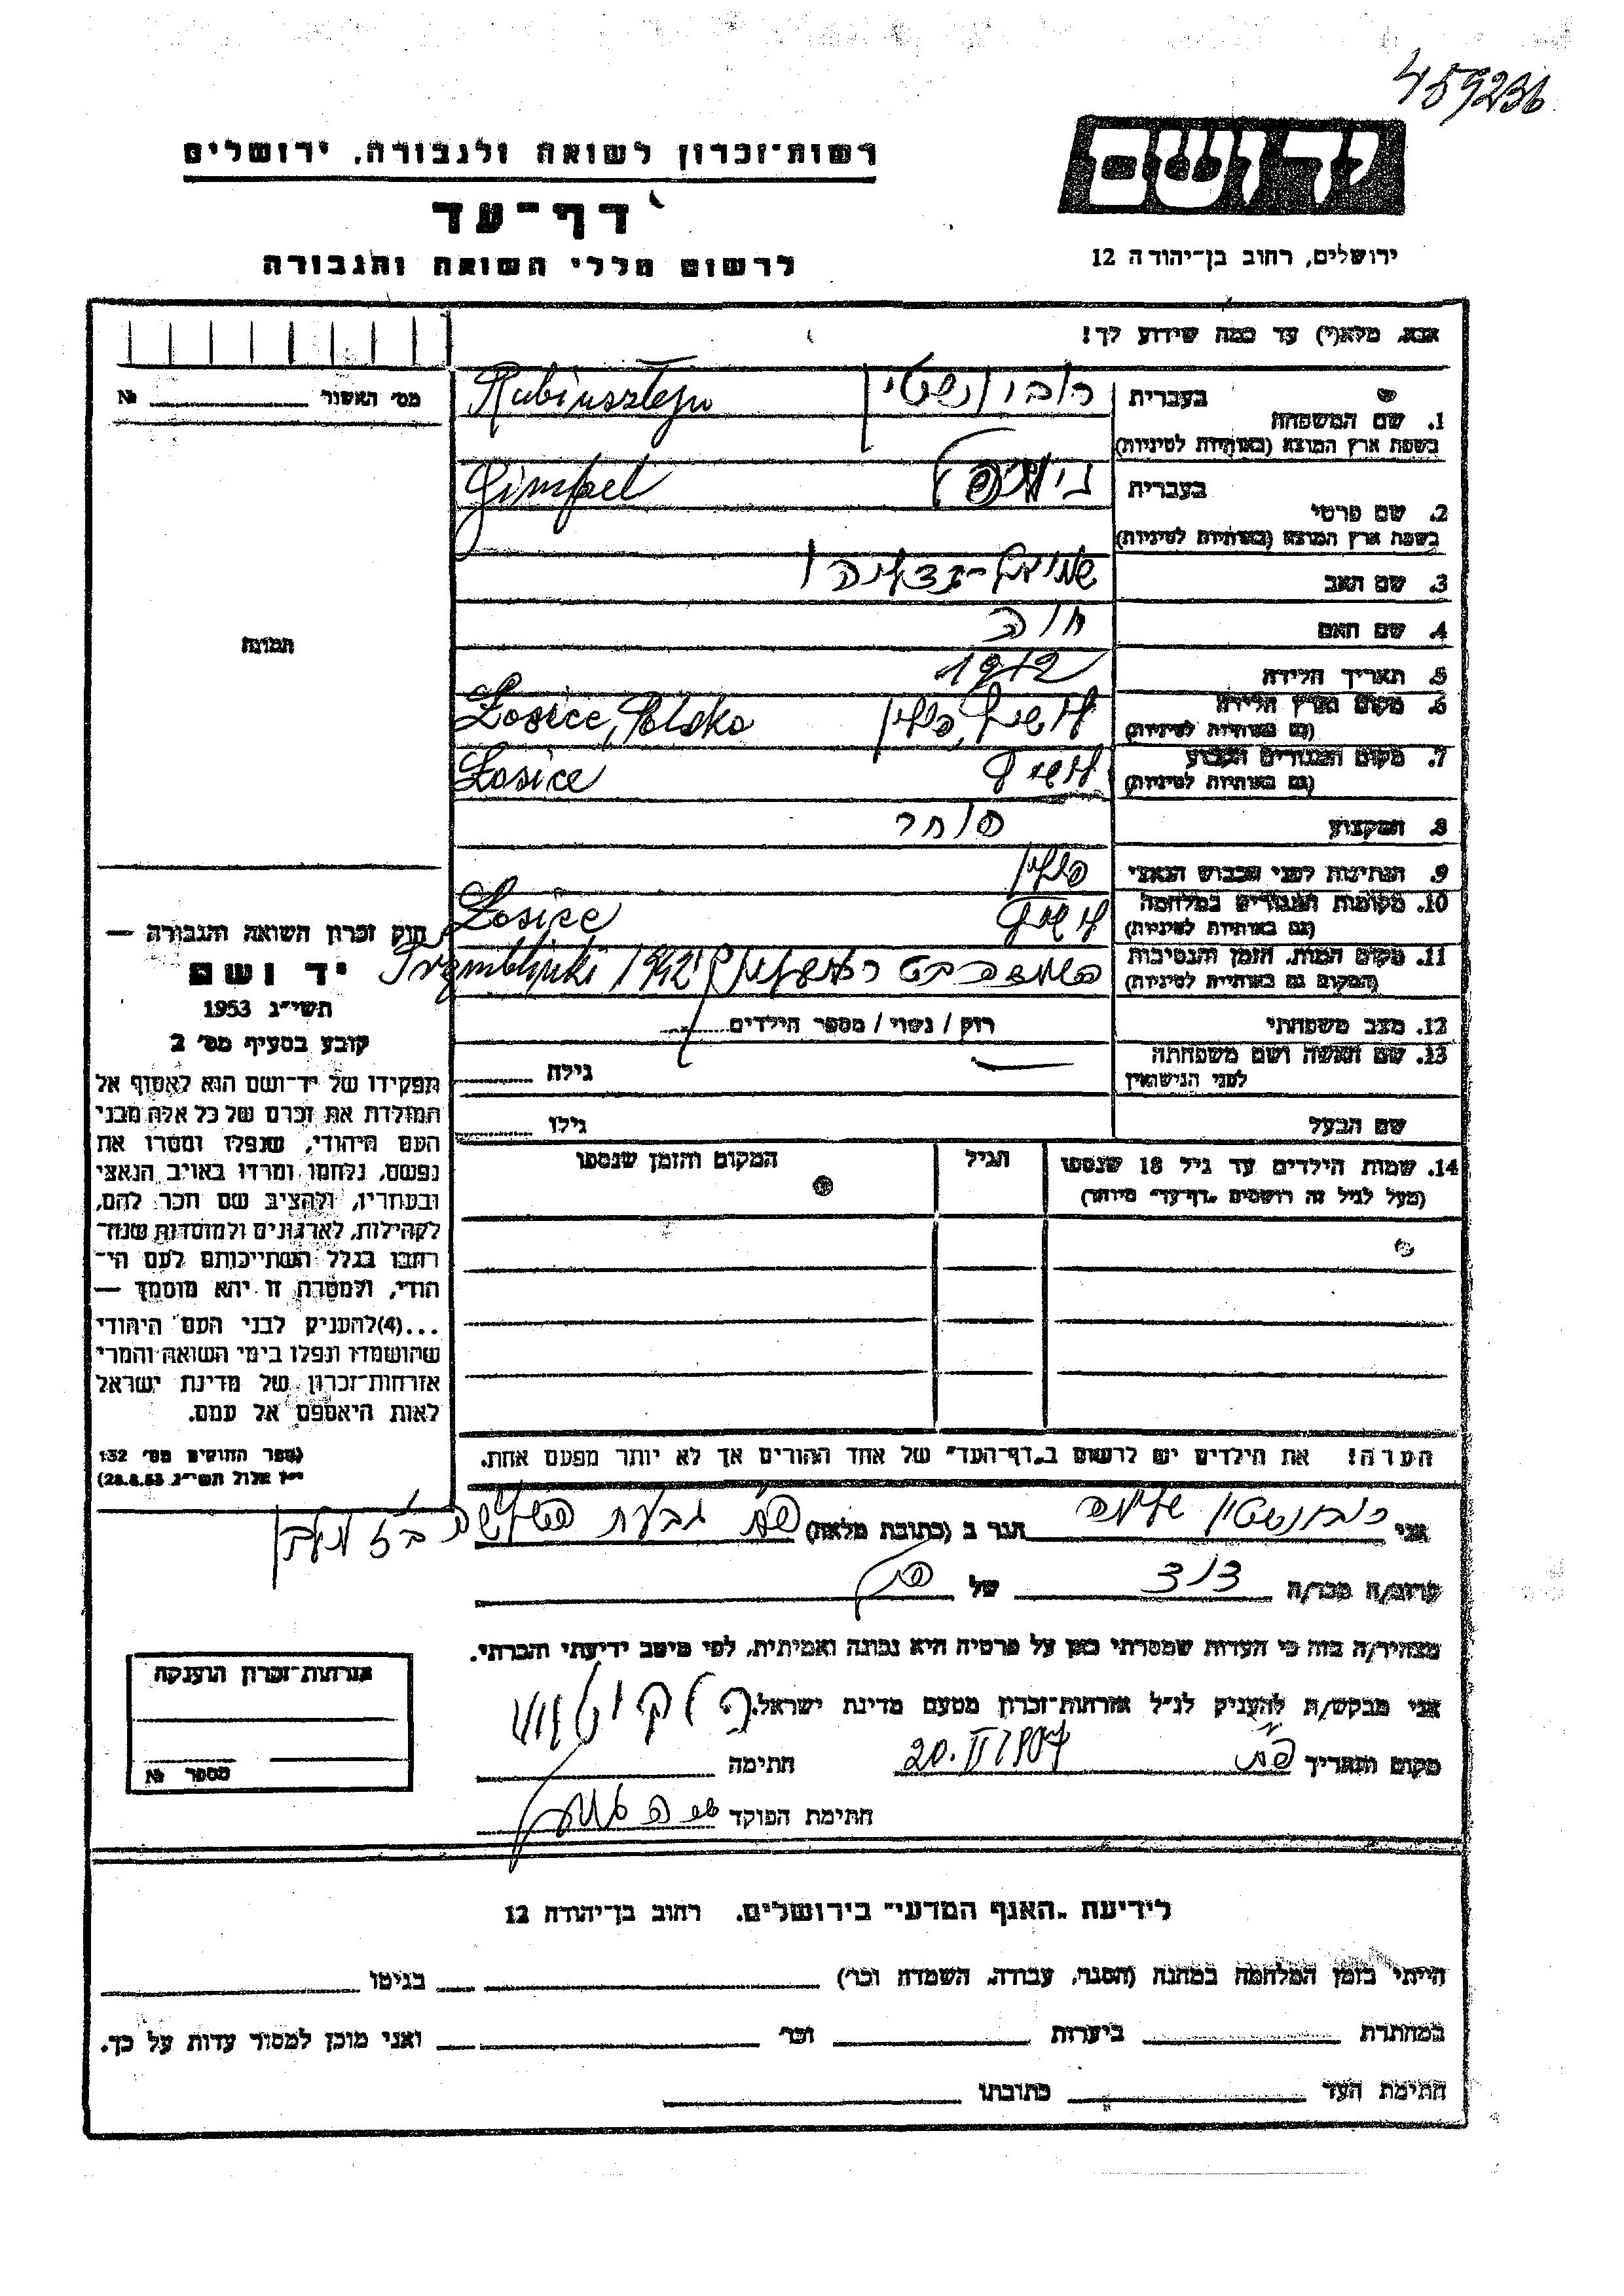 459236
רשות־זכרון לשואה ולגבורה, ירושלים
יד ושם
דף־עד
ירושלים, רחוב בן־יהודה 12
לרשום חללי השואה והגבורה
אנא, מלא(י) עד כמה שידוע לך!
מס' האשור № 
בעברית רובינשטיין Rubinsztejn
1. שם המשפחה
בשפת ארץ המוצא (באותיות לטיניות)
בעברית גימפל Gimpel
2. שם פרטי
בשפת ארץ המוצא (באותיות לטיניות)
3. שם האב
4. שם האם חוה
תמונה
5. תאריך הלידה 1912
6. מקום וארץ הלידה לושיץ, פולין Łosice, Polska
(גם באותיות לטיניות)
7. מקום המגורים הקבוע לושיץ Łosice
(גם באותיות לטיניות)
8. המקצוע סוחר
9. הנתינות לפני הכבוש הנאצי פולין
10. מקומות המגורים במלחמה לושיץ Łosice
(גם באותיות לטיניות)
11. מקום המות, הזמן והנסיבות 1942
(המקום גם באותיות לטיניות)
12. מצב משפחתי רווק / נשוי / מספר הילדים
13. שם האשה ושם משפחתה גילה
לפני הנישואין
שם הבעל גילו
14. שמות הילדים עד גיל 18 שנספו הגיל המקום והזמן שנספו
(מעל לגיל זה רושמים "דף־עד" מיוחד)
הערה! את הילדים יש לרשום ב"דף־העד" של אחד ההורים אך לא יותר מפעם אחת.
חוק זכרון השואה והגבורה —
יד ושם
תשי"ג 1953
קובע בסעיף מס' 2
תפקידו של יד־ושם הוא לאסוף אל
המולדת את זכרם של כל אלה מבני
העם היהודי, שנפלו ומסרו את
נפשם, נלחמו ומרדו באויב הנאצי
ובעוזריו, ולהציב שם וזכר להם,
לקהילות, לארגונים ולמוסדות שנח־
רבו בגלל השתייכותם לעם הי־
הודי, ולמטרה זו יהא מוסמך —
...(4)להעניק לבני העם היהודי
שהושמדו ונפלו בימי השואה והמרי
אזרחות־זכרון של מדינת ישראל
לאות היאספם אל עמם.
(ספר החוקים מס' 132
י"ז אלול תשי"ג 28.8.53)
אני רובינשטיין שלמה הגר ב (כתובת מלאה) פ"ת גבעת השלושה
קרוב/ה מכר/ה דוד של
מצהיר/ה בזה כי העדות שמסרתי כאן על פרטיה היא נכונה ואמיתית, לפי מיטב ידיעתי והכרתי.
אני מבקש/ת להעניק לנ"ל אזרחות־זכרון מטעם מדינת ישראל.
מקום ותאריך פ"ת חתימה
חתימת הפוקד
אזרחות־זכרון הוענקה
מספר №
לידיעת "האגף המדעי" בירושלים. רחוב בן־יהודה 12
הייתי בזמן המלחמה במחנה (הסגר, עבודה, השמדה וכו') בגיטו
במחתרת ביערות וכו' ואני מוכן למסור עדות על כך.
חתימת העד כתובתו